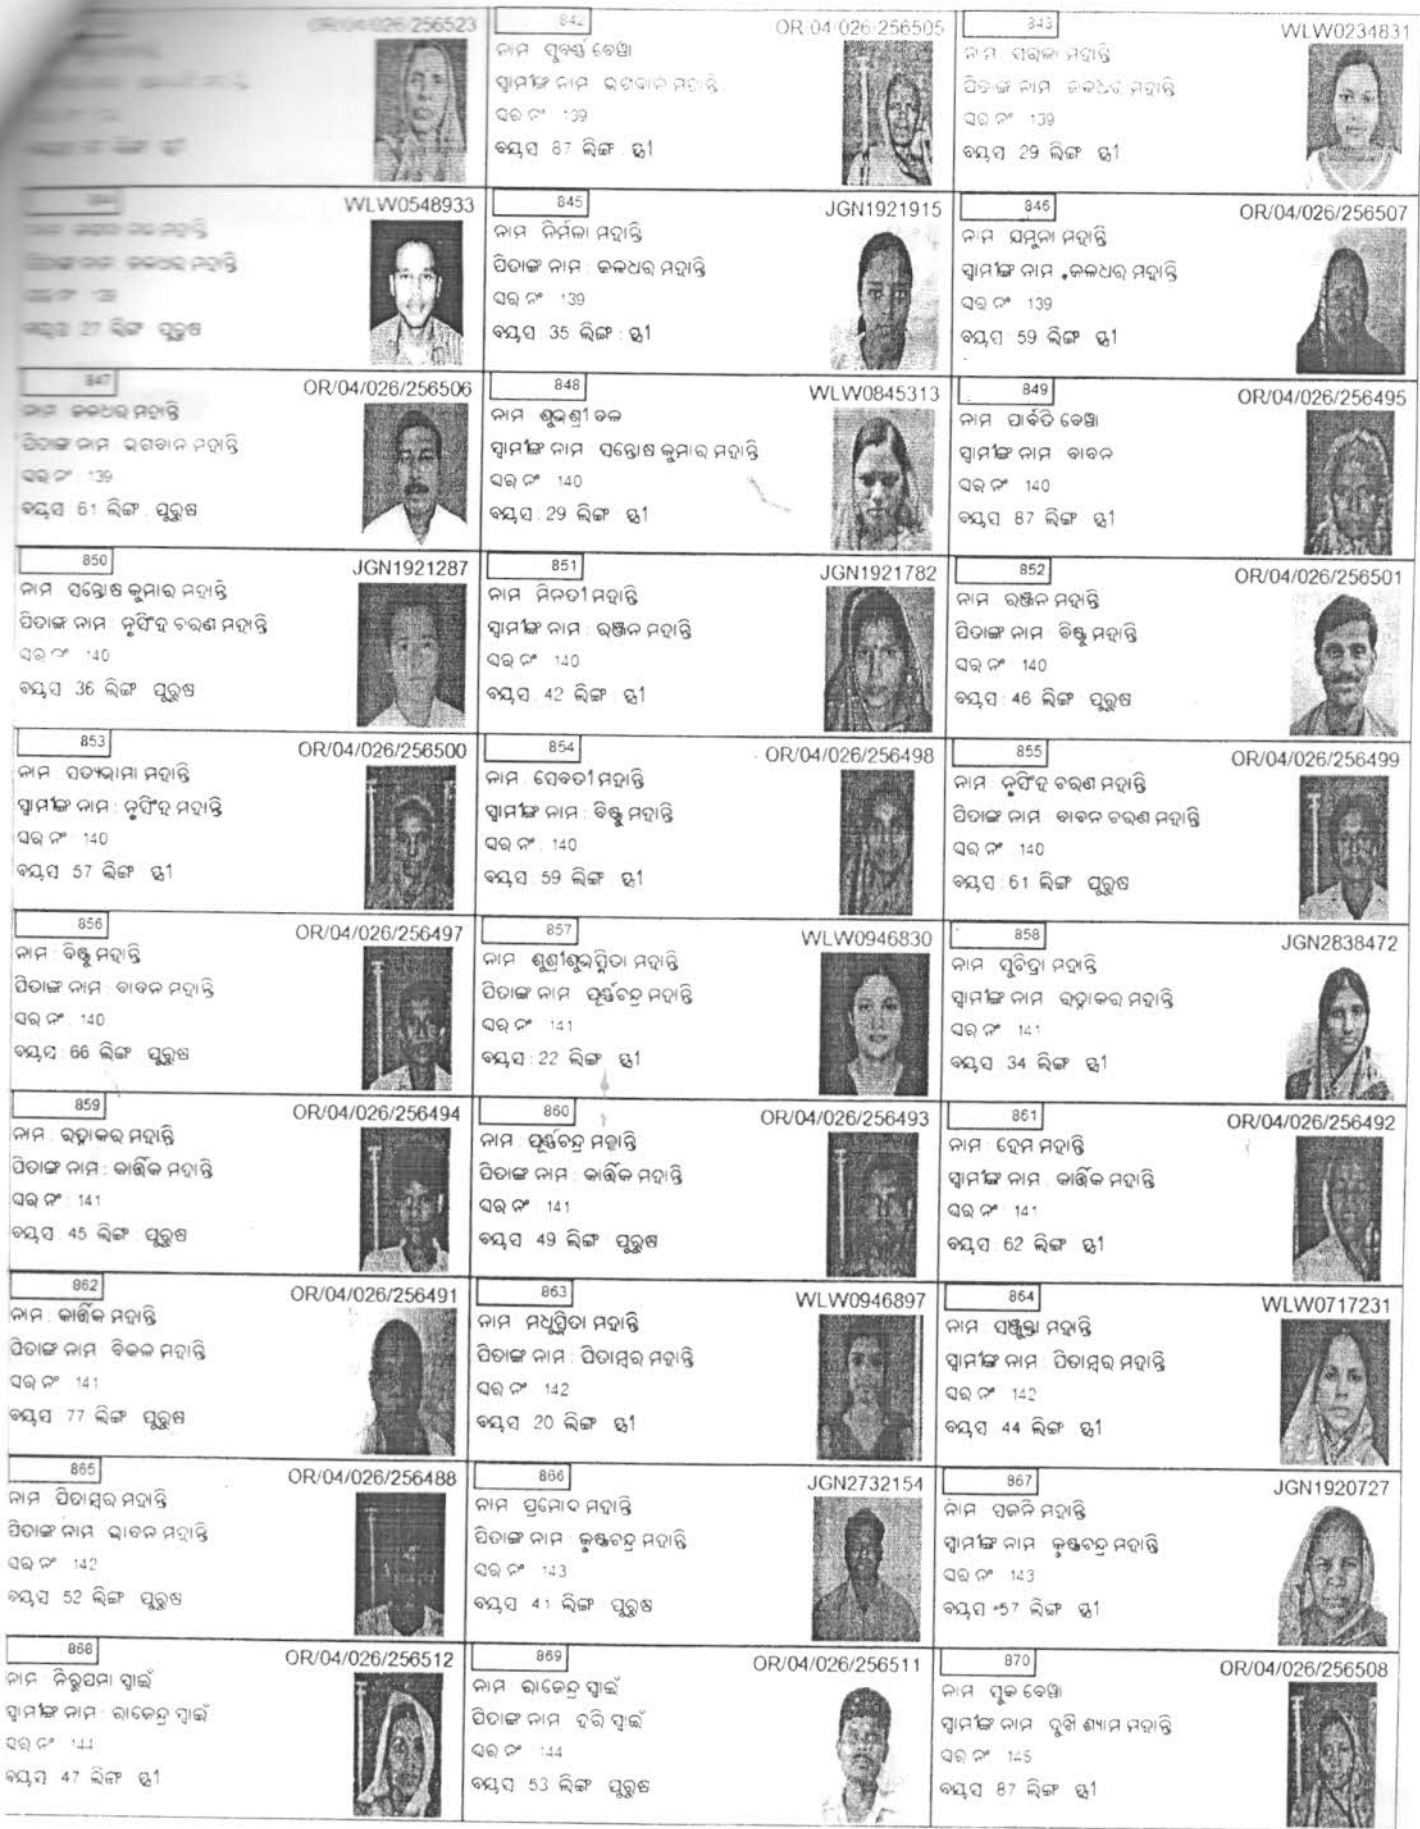 OR/04/026/256523
842
OR/04/026/256505
ନାମ ସୁବର୍ଣ୍ଣ ବେୱା
ସ୍ଵାମୀଙ୍କ ନାମ ଭଗବାନ ମହାନ୍ତି
ଘର ନଂ 139
ବୟସ 87 ଲିଙ୍ଗ ସ୍ତ୍ରୀ
843
WLW0234831
ନାମ ସରଳା ମହାନ୍ତି
ପିତାଙ୍କ ନାମ ଜଳଧର ମହାନ୍ତି
ଘର ନଂ 139
ବୟସ 29 ଲିଙ୍ଗ ସ୍ତ୍ରୀ
WLW0548933
ମହାନ୍ତି
ପିତାଙ୍କ ନାମ ଜଳଧର ମହାନ୍ତି
ଘର ନଂ 139
ବୟସ 27 ଲିଙ୍ଗ ପୁରୁଷ
845
JGN1921915
ନାମ ନିର୍ମଳା ମହାନ୍ତି
ପିତାଙ୍କ ନାମ : ଜଳଧର ମହାନ୍ତି
ଘର ନଂ 139
ବୟସ 35 ଲିଙ୍ଗ : ସ୍ତ୍ରୀ
846
OR/04/026/256507
ନାମ ଯମୁନା ମହାନ୍ତି
ସ୍ଵାମୀଙ୍କ ନାମ ଜଳଧର ମହାନ୍ତି
ଘର ନଂ 139
ବୟସ 59 ଲିଙ୍ଗ ସ୍ତ୍ରୀ
847
OR/04/026/256506
ନାମ ଜଳଧର ମହାନ୍ତି
ପିତାଙ୍କ ନାମ ଭଗବାନ ମହାନ୍ତି
ଘର ନଂ 139
ବୟସ 61 ଲିଙ୍ଗ ପୁରୁଷ
848
WLW0845313
ନାମ ଶୁଭଶ୍ରୀ ବଳ
ସ୍ଵାମୀଙ୍କ ନାମ ସନ୍ତୋଷ କୁମାର ମହାନ୍ତି
ଘର ନଂ 140
ବୟସ 29 ଲିଙ୍ଗ ସ୍ତ୍ରୀ
849
OR/04/026/256495
ନାମ ପାର୍ବତି ବେୱା
ସ୍ଵାମୀଙ୍କ ନାମ ବାବନ
ଘର ନଂ 140
ବୟସ 87 ଲିଙ୍ଗ ସ୍ତ୍ରୀ
850
JGN1921287
ନାମ ସନ୍ତୋଷ କୁମାର ମହାନ୍ତି
ପିତାଙ୍କ ନାମ ନୃସିଂହ ଚରଣ ମହାନ୍ତି
ଘର ନଂ 140
ବୟସ 36 ଲିଙ୍ଗ ପୁରୁଷ
851
JGN1921782
ନାମ ମିନତୀ ମହାନ୍ତି
ସ୍ଵାମୀଙ୍କ ନାମ : ରଞ୍ଜନ ମହାନ୍ତି
ଘର ନଂ 140
ବୟସ 42 ଲିଙ୍ଗ ସ୍ତ୍ରୀ
852
OR/04/026/256501
ନାମ ରଞ୍ଜନ ମହାନ୍ତି
ପିତାଙ୍କ ନାମ ବିଷ୍ଣୁ ମହାନ୍ତି
ଘର ନଂ 140
ବୟସ : 46 ଲିଙ୍ଗ ପୁରୁଷ
853
OR/04/026/256500
ନାମ ସତ୍ୟଭାମା ମହାନ୍ତି
ସ୍ଵାମୀଙ୍କ ନାମ : ନୃସିଂହ ମହାନ୍ତି
ଘର ନଂ 140
ବୟସ 57 ଲିଙ୍ଗ ସ୍ତ୍ରୀ
854
OR/04/026/256498
ନାମ ସେବତୀ ମହାନ୍ତି
ସ୍ଵାମୀଙ୍କ ନାମ : ବିଷ୍ଣୁ ମହାନ୍ତି
ଘର ନଂ 140
ବୟସ : 59 ଲିଙ୍ଗ ସ୍ତ୍ରୀ
855
OR/04/026/256499
ନାମ : ନୃସିଂହ ଚରଣ ମହାନ୍ତି
ପିତାଙ୍କ ନାମ ବାବନ ଚରଣ ମହାନ୍ତି
ଘର ନଂ 140
ବୟସ : 61 ଲିଙ୍ଗ ପୁରୁଷ
856
OR/04/026/256497
ନାମ : ବିଷ୍ଣୁ ମହାନ୍ତି
ପିତାଙ୍କ ନାମ : ବାବନ ମହାନ୍ତି
ଘର ନଂ 140
ବୟସ : 66 ଲିଙ୍ଗ ପୁରୁଷ
857
WLW0946830
ନାମ ଶୁଶ୍ରୀଶୁଭସ୍ମିତା ମହାନ୍ତି
ପିତାଙ୍କ ନାମ ପୂର୍ଣ୍ଣଚନ୍ଦ୍ର ମହାନ୍ତି
ଘର ନଂ 141
ବୟସ : 22 ଲିଙ୍ଗ ସ୍ତ୍ରୀ
858
JGN2838472
ନାମ ସୁଚିତ୍ରା ମହାନ୍ତି
ସ୍ଵାମୀଙ୍କ ନାମ ରତ୍ନାକର ମହାନ୍ତି
ଘର ନଂ 141
ବୟସ 34 ଲିଙ୍ଗ ସ୍ତ୍ରୀ
859
OR/04/026/256494
ନାମ : ରତ୍ନାକର ମହାନ୍ତି
ପିତାଙ୍କ ନାମ : କାର୍ତ୍ତିକ ମହାନ୍ତି
ଘର ନଂ : 141
ବୟସ : 45 ଲିଙ୍ଗ ପୁରୁଷ
860
OR/04/026/256493
ନାମ : ପୂର୍ଣ୍ଣଚନ୍ଦ୍ର ମହାନ୍ତି
ପିତାଙ୍କ ନାମ : କାର୍ତ୍ତିକ ମହାନ୍ତି
ଘର ନଂ 141
ବୟସ 49 ଲିଙ୍ଗ ପୁରୁଷ
861
OR/04/026/256492
ନାମ ହେମ ମହାନ୍ତି
ସ୍ଵାମୀଙ୍କ ନାମ କାର୍ତ୍ତିକ ମହାନ୍ତି
ଘର ନଂ 141
ବୟସ : 62 ଲିଙ୍ଗ ସ୍ତ୍ରୀ
862
OR/04/026/256491
ନାମ : କାର୍ତ୍ତିକ ମହାନ୍ତି
ପିତାଙ୍କ ନାମ ବିକଳ ମହାନ୍ତି
ଘର ନଂ 141
ବୟସ 77 ଲିଙ୍ଗ ପୁରୁଷ
863
WLW0946897
ନାମ ମଧୁସ୍ମିତା ମହାନ୍ତି
ପିତାଙ୍କ ନାମ : ପିତାମ୍ବର ମହାନ୍ତି
ଘର ନଂ 142
ବୟସ 20 ଲିଙ୍ଗ ସ୍ତ୍ରୀ
864
WLW0717231
ନାମ ସଞ୍ଜୁକ୍ତା ମହାନ୍ତି
ସ୍ଵାମୀଙ୍କ ନାମ : ପିତାମ୍ବର ମହାନ୍ତି
ଘର ନଂ 142
ବୟସ 44 ଲିଙ୍ଗ ସ୍ତ୍ରୀ
865
OR/04/026/256488
ନାମ ପିତାମ୍ବର ମହାନ୍ତି
ପିତାଙ୍କ ନାମ ଭାବନ ମହାନ୍ତି
ଘର ନଂ 142
ବୟସ 52 ଲିଙ୍ଗ ପୁରୁଷ
866
JGN2732154
ନାମ ପ୍ରମୋଦ ମହାନ୍ତି
ପିତାଙ୍କ ନାମ କୃଷ୍ଣଚନ୍ଦ୍ର ମହାନ୍ତି
ଘର ନଂ 143
ବୟସ 41 ଲିଙ୍ଗ ପୁରୁଷ
867
JGN1920727
ନାମ ସଜନି ମହାନ୍ତି
ସ୍ଵାମୀଙ୍କ ନାମ କୃଷ୍ଣଚନ୍ଦ୍ର ମହାନ୍ତି
ଘର ନଂ 143
ବୟସ 57 ଲିଙ୍ଗ ସ୍ତ୍ରୀ
868
OR/04/026/256512
ନାମ ନିରୁପମା ସ୍ଵାଇଁ
ସ୍ଵାମୀଙ୍କ ନାମ : ରାଜେନ୍ଦ୍ର ସ୍ଵାଇଁ
ଘର ନଂ 144
ବୟସ 47 ଲିଙ୍ଗ ସ୍ତ୍ରୀ
869
OR/04/026/256511
ନାମ ରାଜେନ୍ଦ୍ର ସ୍ଵାଇଁ
ପିତାଙ୍କ ନାମ ହରି ସ୍ଵାଇଁ
ଘର ନଂ 144
ବୟସ 53 ଲିଙ୍ଗ ପୁରୁଷ
870
OR/04/026/256508
ନାମ ସୁକ ବେୱା
ସ୍ଵାମୀଙ୍କ ନାମ ଦୁଃଖି ଶ୍ୟାମ ମହାନ୍ତି
ଘର ନଂ 145
ବୟସ 87 ଲିଙ୍ଗ ସ୍ତ୍ରୀ